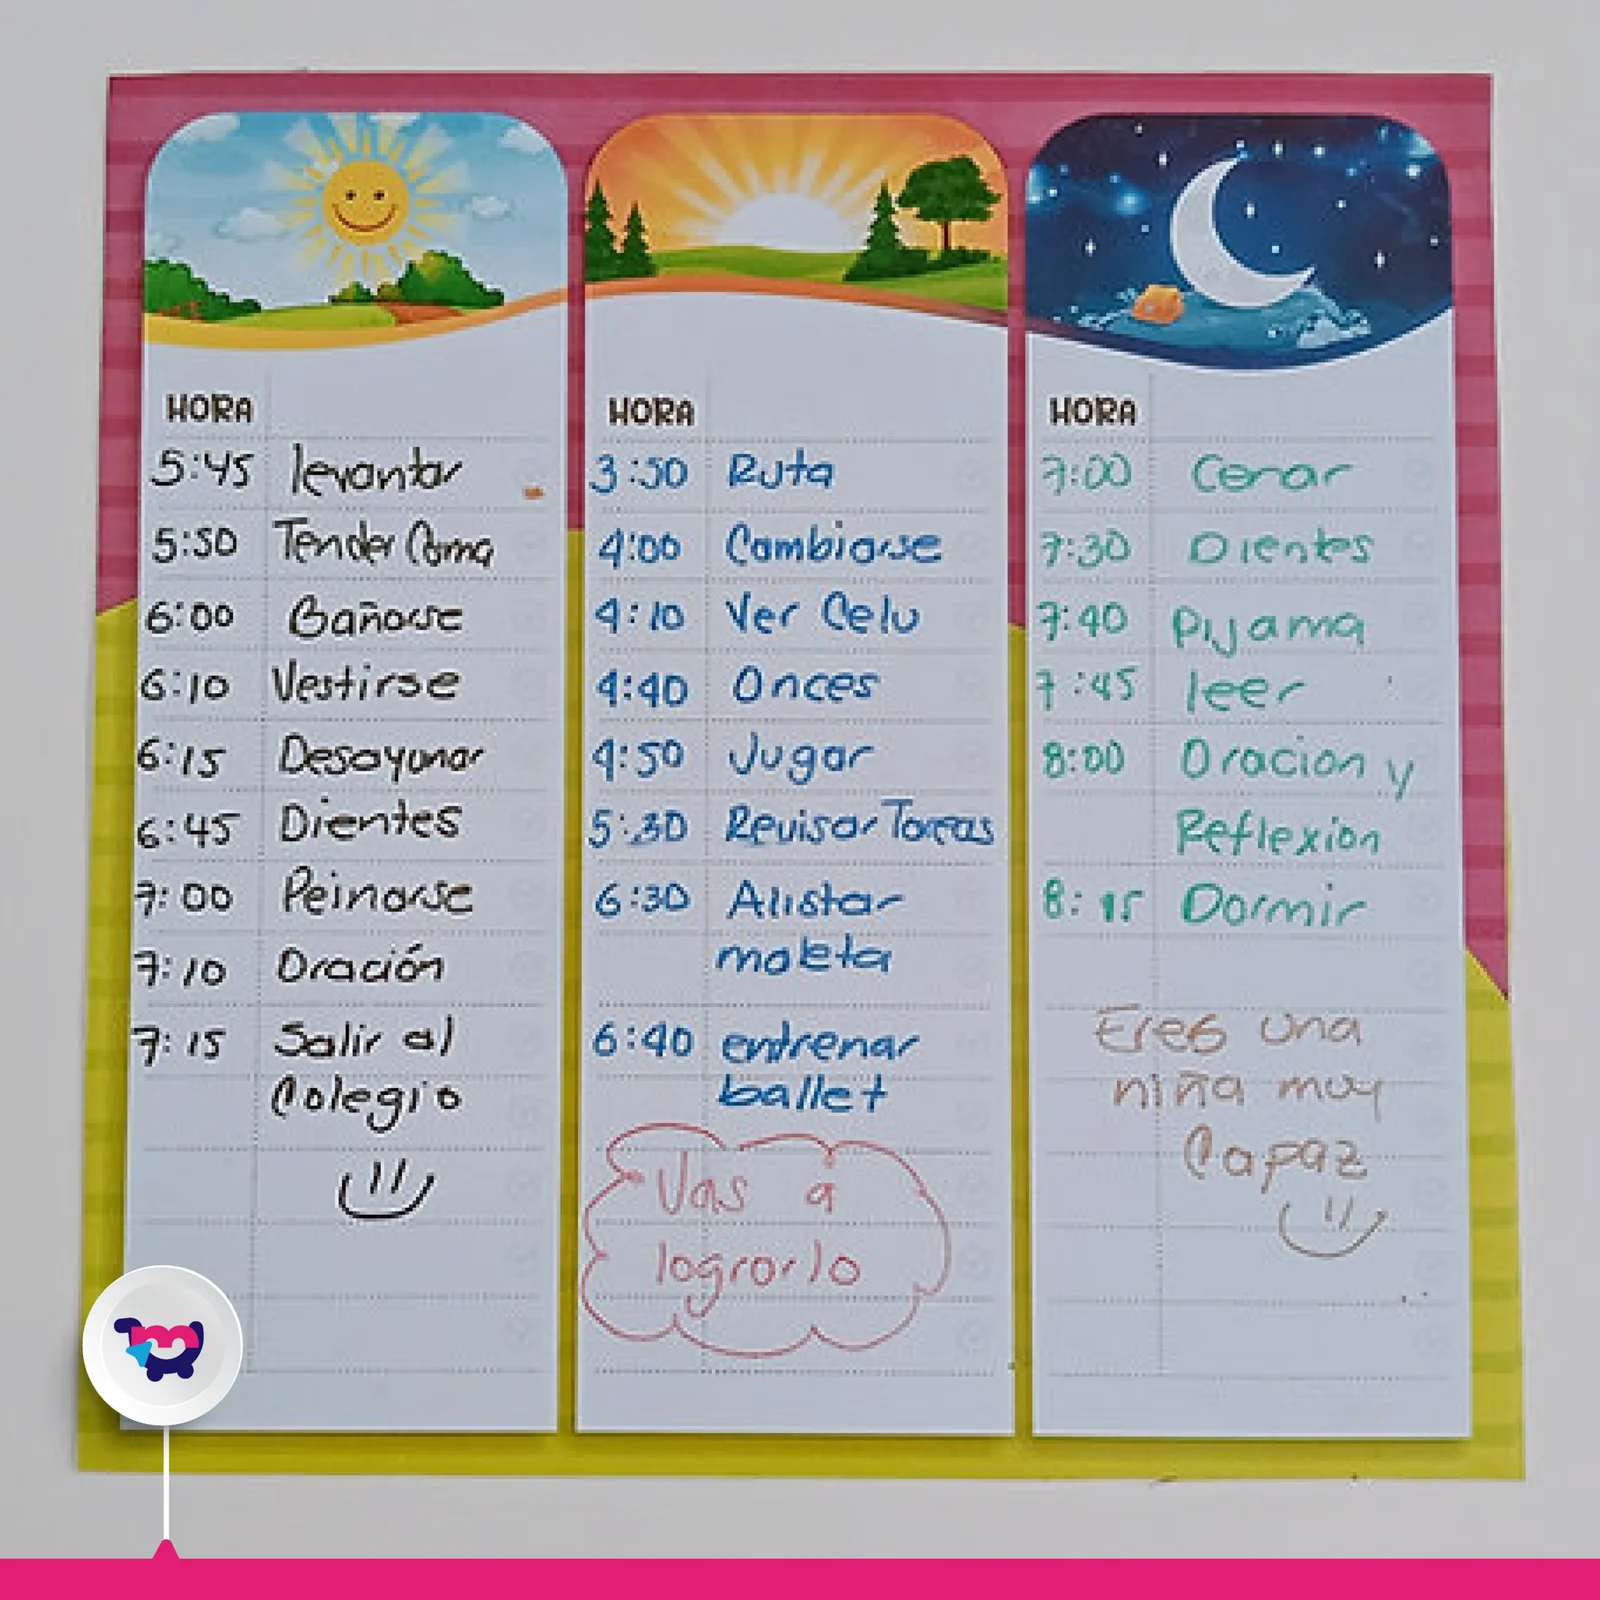 HORA
5:45 levantar
5:50 Tender Cama
6:00 Bañarse
6:10 Vestirse
6:15 Desayunar
6:45 Dientes
7:00 Peinarse
7:10 Oración
7:15 Salir al
Colegio
HORA
3:50 Ruta
4:00 Cambiarse
4:10 Ver Celu
4:40 Onces
4:50 Jugar
5:30 Revisar Tareas
6:30 Alistar
maleta
6:40 entrenar
ballet
Vas a
lograrlo
HORA
7:00 Cenar
7:30 Dientes
7:40 Pijama
7:45 leer
8:00 Oracion y
Reflexion
8:15 Dormir
Eres una
niña muy
Capaz